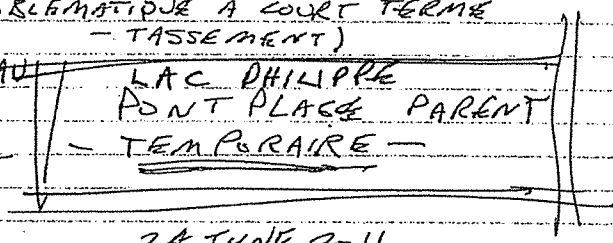 BLEMATIQUE A COURT TERME
- TASSEMENT)
LAC PHILIPPE
PONT PLAGE PARENT
- TEMPORAIRE -